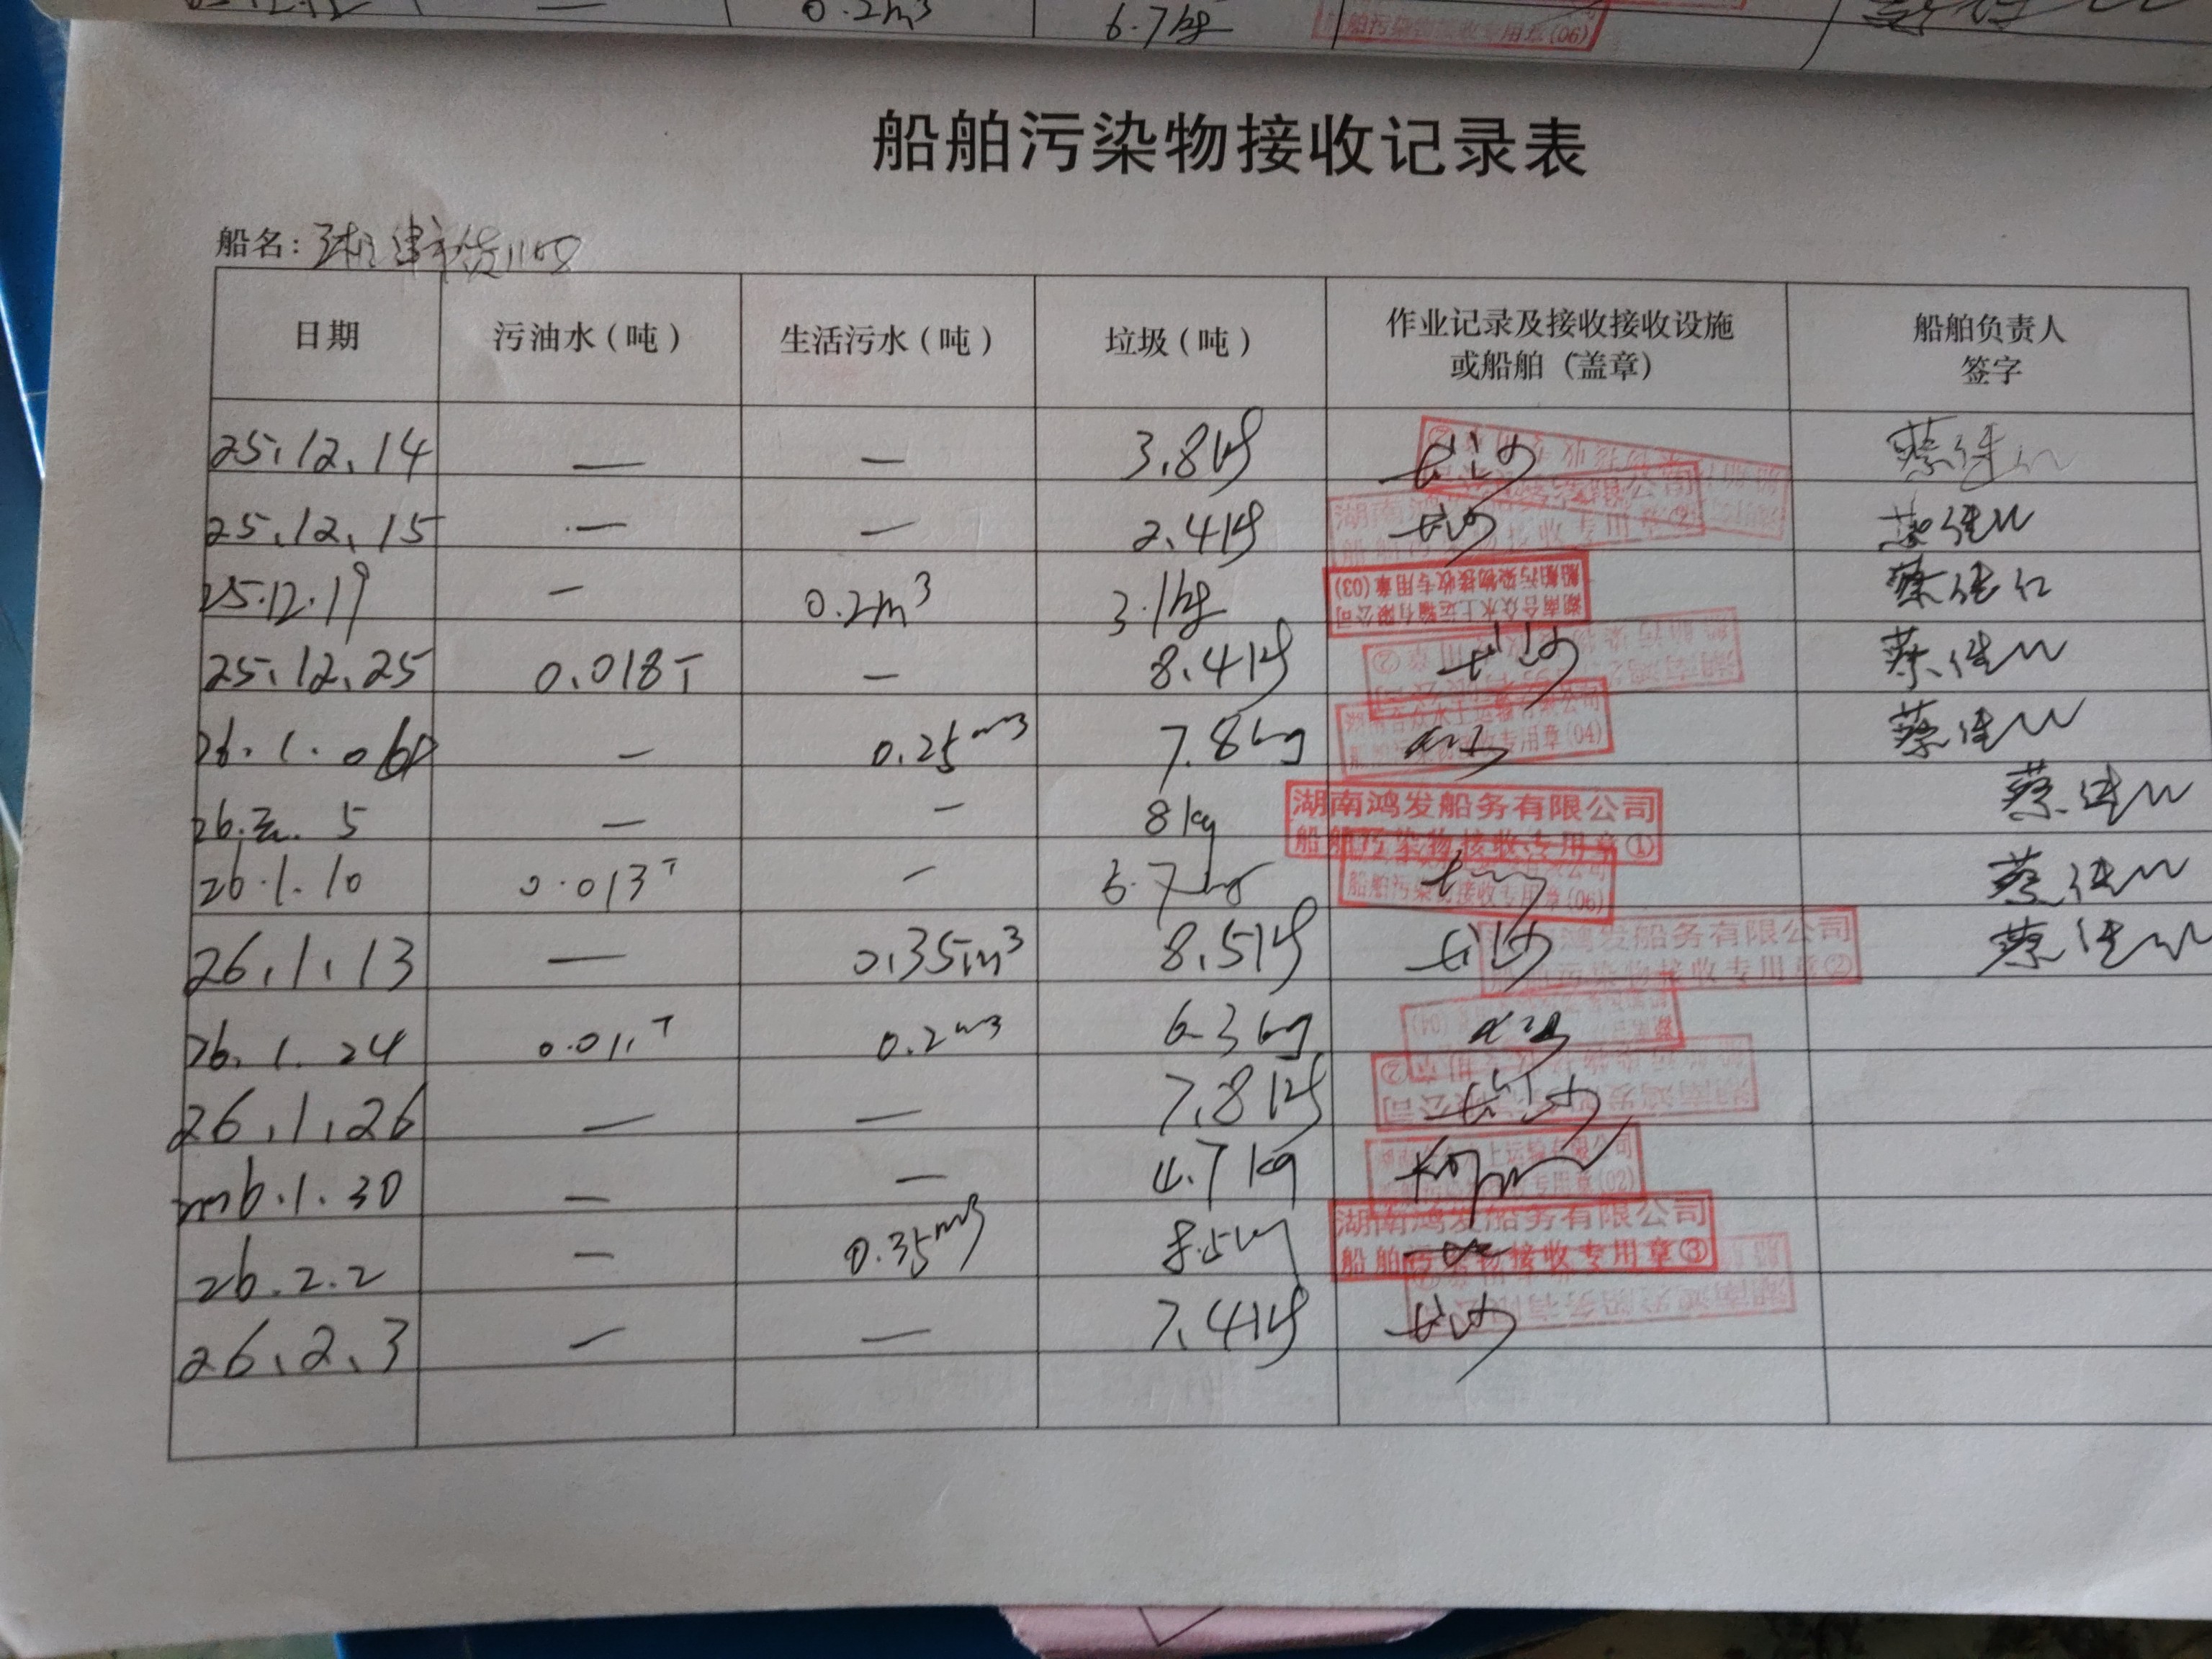 0.2m³ 6.7kg
船舶污染物接收专用章(06)
船舶污染物接收记录表
船名:
日期 污油水(吨) 生活污水(吨) 垃圾(吨) 作业记录及接收接收设施或船舶(盖章) 船舶负责人签字
25.12.14 — — 3.8kg 长沙
25.12.15 — — 2.4kg 长沙
25.12.19 — 0.2m³ 3.1kg
湖南合众水上运输有限公司
船舶污染物接收专用章(03)
25.12.25 0.018T — 8.4kg 长沙
26.1. — 0.25m³ 7.8kg
湖南合众水上运输有限公司
船舶污染物接收专用章(04)
26. 5 — — 8kg
湖南鸿发船务有限公司
船舶污染物接收专用章①
26.1.10 0.013T — 6.7kg
船舶污染物接收专用章(06)
26.1.13 — 0.35m³ 8.5kg 长沙
鸿发船务有限公司
船舶污染物接收专用章②
26.1.24 0.011T 0.2m³ 6.3kg
26.1.26 — — 7.8kg 长沙
26.1.30 — — 4.7kg
26.2.2 — 0.35m³ 8.5kg
湖南鸿发船务有限公司
船舶污染物接收专用章③
26.2.3 — — 7.4kg 长沙